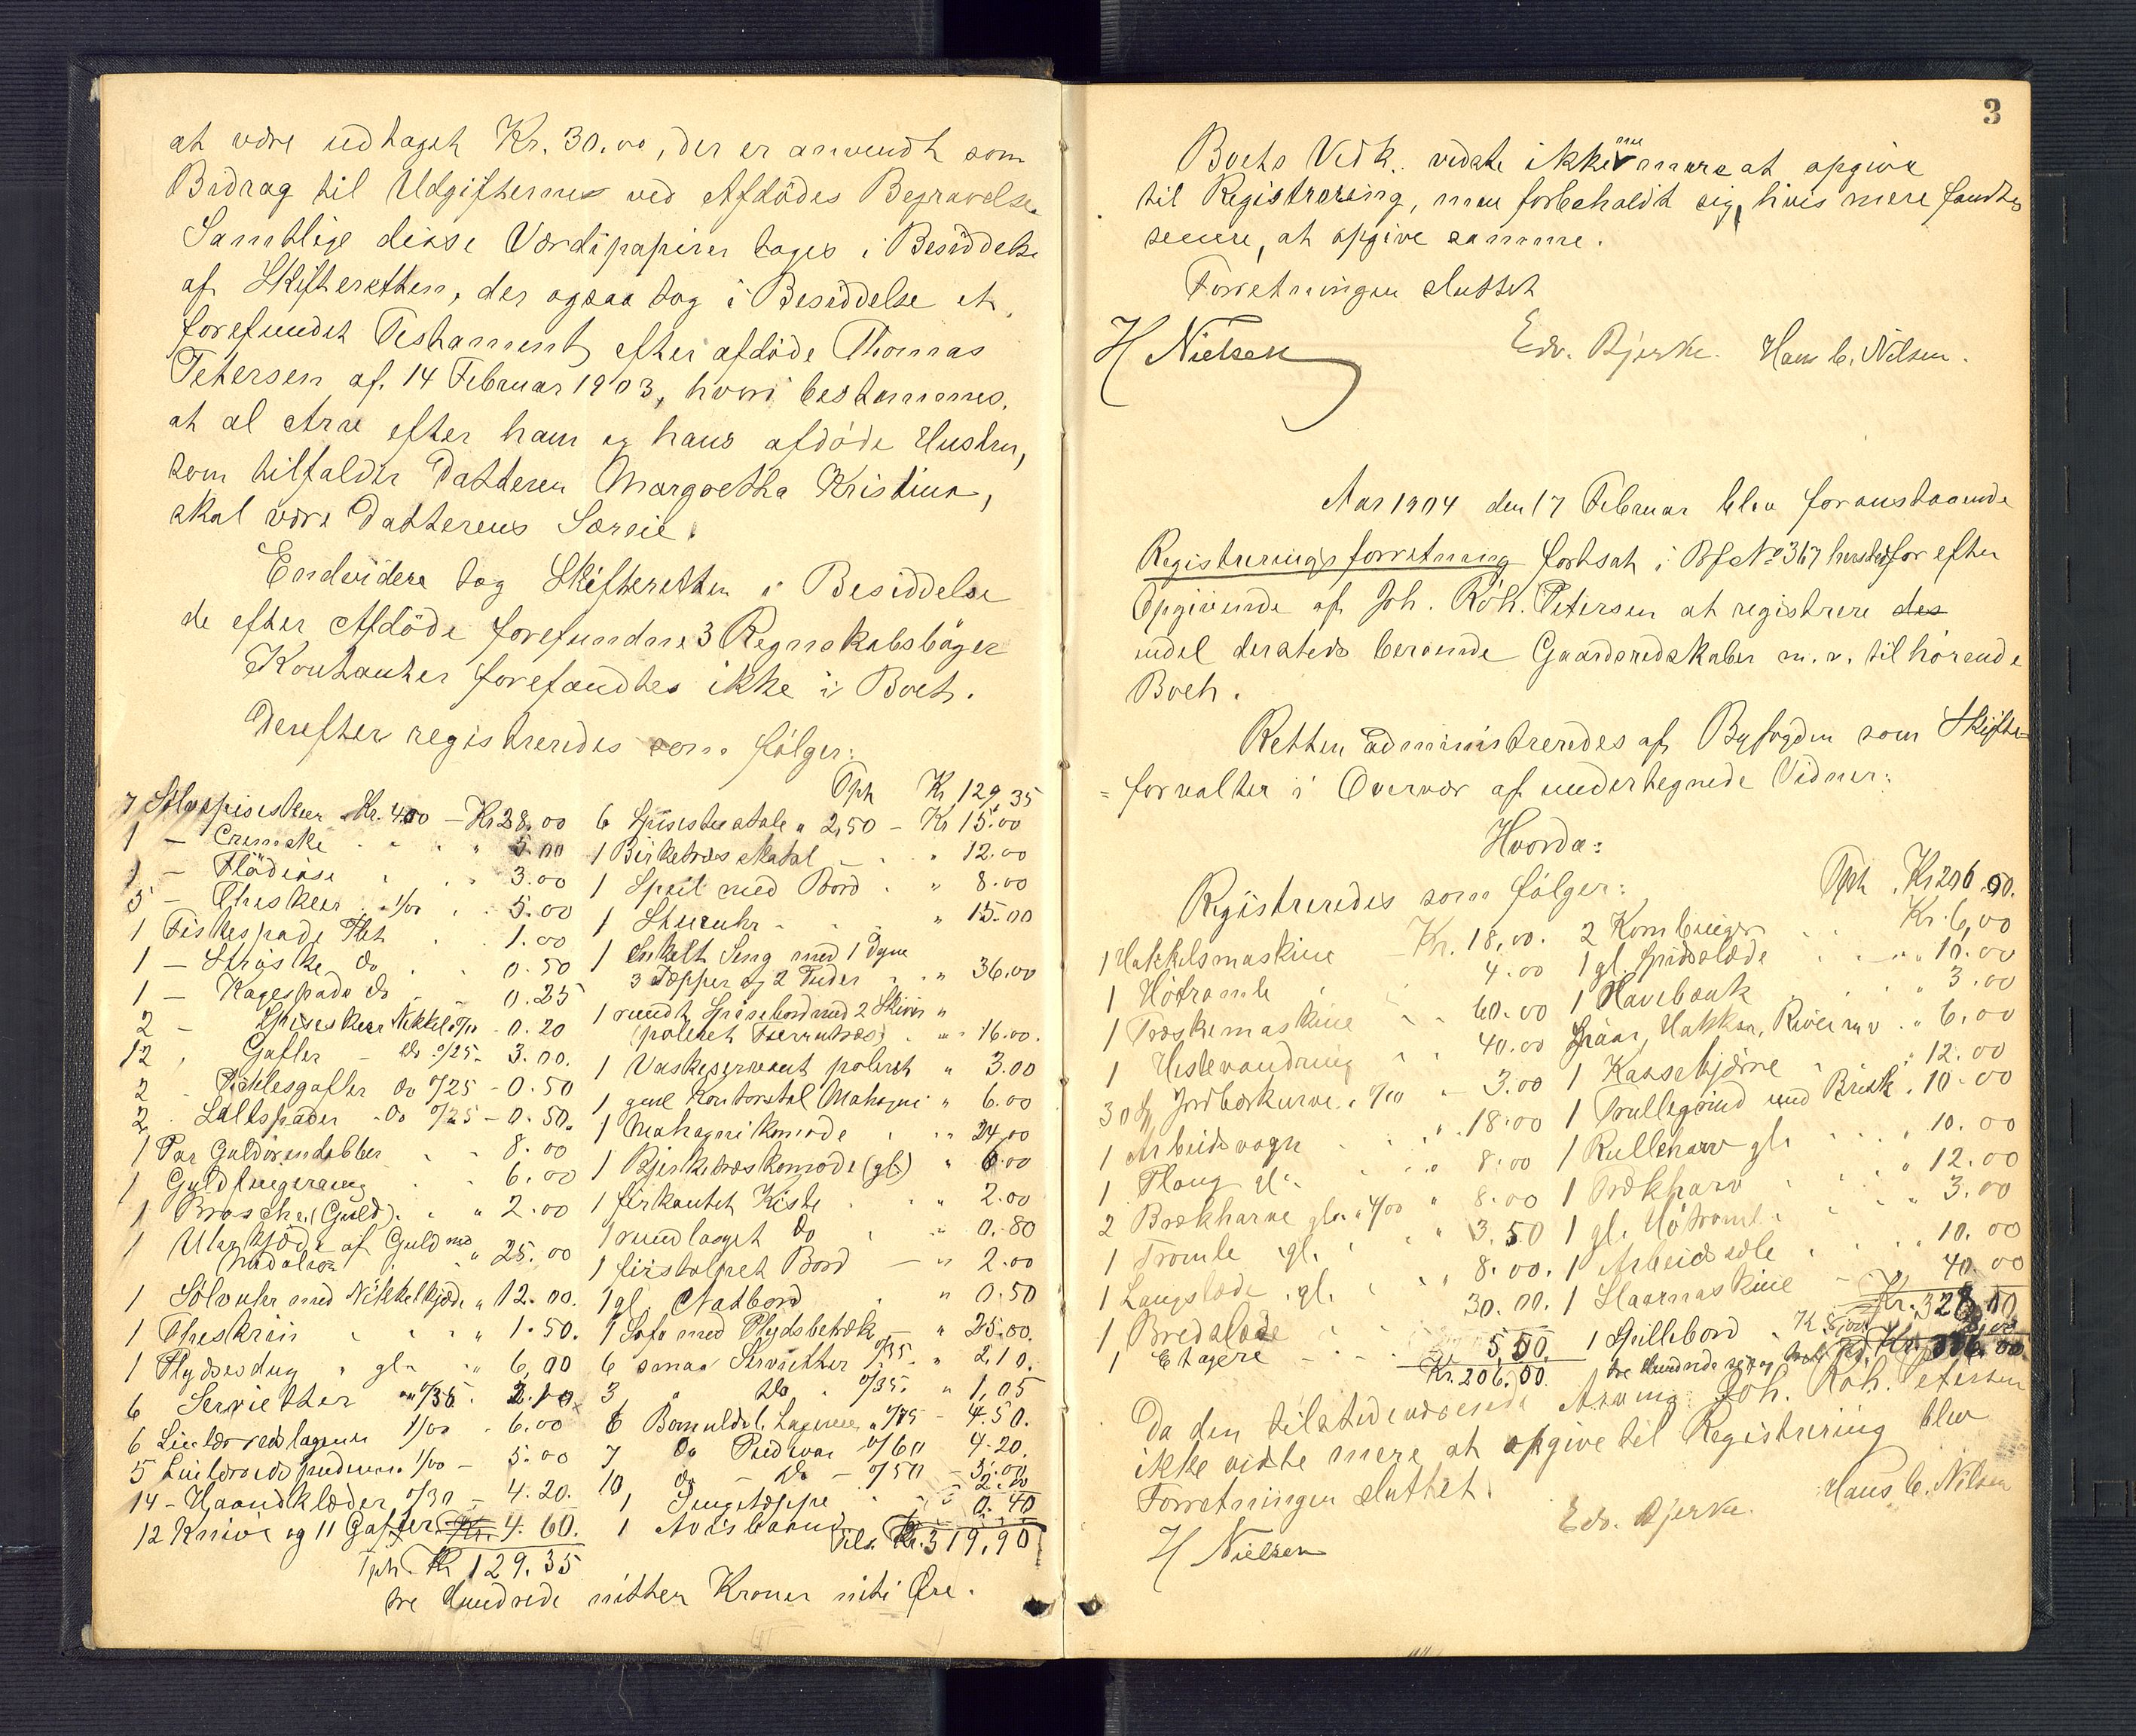 at være udtaget Kr. 30.00, der er anvendt som
Bidrag til Udgifterne ved Afdödes Begravelse.
Samtlige disse Værdipapirer toges i Besiddelse
af Skifteretten, der ogsaa tog i Besiddelse et
forefundet Testament efter afdöde Thomas
Petersen af 14 Februar 1903, hvori bestemmes,
at al Arv efter ham og hans afdöde Hustru,
som tilfalder Datteren Margretha Kristina,
skal være Datterens Særeie.
Endvidere tog Skifteretten i Besiddelse
de efter Afdöde forefundne 3 Regnskabsböger
Kontanter forefandtes ikke i Boet.
Derefter registreredes som fölger:
7 Sölvspiseskeer Kr. 4.00 – Kr 28.00
1 – Cremske 5.00
1 – Flödeöse 3.00
5 – Theskeer 1/00 5.00
1 Fiskespade Plet 1.00
1 – Ströske do 0.50
1 – Kagespade do 0.25
2 – Spiseskeer Nikkel 0/10 – 0.20
12 Gafler – do 0/25 – 3.00.
2 Picklesgafler do 0/25 – 0.50
2 Saltspader do 0/25 – 0.50.
1 Par Guldörendobber 8.00
1 Guldfingerring 6.00
1 Brosche (Guld) 2.00
1 Uhrkjæde af Guld med
Medalion 25.00
1 Sölvuhr med Nikkelkjæde 12.00.
1 Theskrin 1.50.
1 Plydsesdug gl. 6,00
6 Servietter 0/35. 2.10
6 Linlærredslagener 1/00 6.00
5 Linlærreds pudevar 1/00 – 5.00
14 – Haandklæder 0/30 – 4.20.
12 Knive og 11 Gafler Kr. 4.60.
Tph. Kr 129.35
Tph Kr 129.35
6 Spisestuestole 2,50 – Kr 15.00
1 Birketræs skatol 12.00
1 Speil med Bord 8.00
1 Stueuhr 15.00
1 Enkelt Seng med 1 Dyne
3 Tæpper og 2 Puder 36.00
1 rundt Spisebord med 2 Skiver
(poleret Furrutræ) 16.00.
1 Vaskeservant poleret 3.00
1 gml Kontorstol Mahogni 6.00
1 Mahognikomode 24,00
1 Bjerketræskomode (gl.) 6.00
1 firkantet Kiste 2.00
1 rundlaaget Do 0.80
1 firstolpet Bord 2.00
1 gl. Natbord 0.50
1 Sofa med Plydsbetræk 25.00.
6 smaa Servietter 0/35. 2,10.
3 Do 0/35. 1,05
6 Bomulds l. Lagener 0/75 – 4.50.
7 do Pudevar 0/60 4.20.
10 do – do – 0/50 – 5.00
1 Sengetæppe 2.00
1 Avisbaand 0.40
Tils. Kr. 319,90
tre Hundrede nitten Kroner niti Øre.
3
Boets Vedk. vidste ikke nu mere at opgive
til Registrering, men forbeholdt sig, hvis mere fandtes
senere, at opgive samme.
Forretningen sluttet
H Nielsen Edv. Bjerke. Hans C. Nilsen.
Aar 1904 den 17 Februar blev foranstaaende
Registreringsforretning fortsat i Bf No 367 hersteds for efter
Opgivende af Joh. Rob. Petersen at registrere des
endel dersteds beroende Gaardsredskaber m. v. tilhörende
Boet.
Retten administreredes af Byfogden som Skifte=
=forvalter i Overvær af undertegnede Vidner:
Hvorda:
Registreredes som fölger:
1 Hakkelsmaskine – Kr. 18,00.
1 Hötromle 4.00
1 Træskemaskine 60.00
1 Hestevandring 40.00
30 St. Jordbærkurve 0/10 – 3.00
1 Arbeidsvogn 18.00
1 Ploug gl. 8.00
2 Brækharve gl. 4/00 8.00
1 Tromle gl. 3.50
1 Langslæde gl. 8.00.
1 Bredslæde 30.00.
1 Etagere 5.50.
Kr. 206.00.
Tph. Kr 206.00.
2 Kornbinger Kr. 6,00
1 gl. Spidsslæde 10.00
1 Hövlbænk 3.00
Ljaar, Hakker, River m v. 6.00
1 Kassekjærre 12.00
1 Trullegrind med Brisk 10.00
1 Rulleharv gl. 10.00
1 Trækharv 12.00
1 gl. Hötroml. 3.00
1 Arbeidssele 10.00
1 Slaamaskine 40.00
Kr. 328,00
1 Spillebord K 8,00 8,00
Kr. 336.00
Da den tilstedeværende Arving Joh. Rob. Petersen
ikke vidste mere at opgive til Registrering blev
Forretningen sluttet.
H Nielsen Edv. Bjerke. Hans C. Nilsen